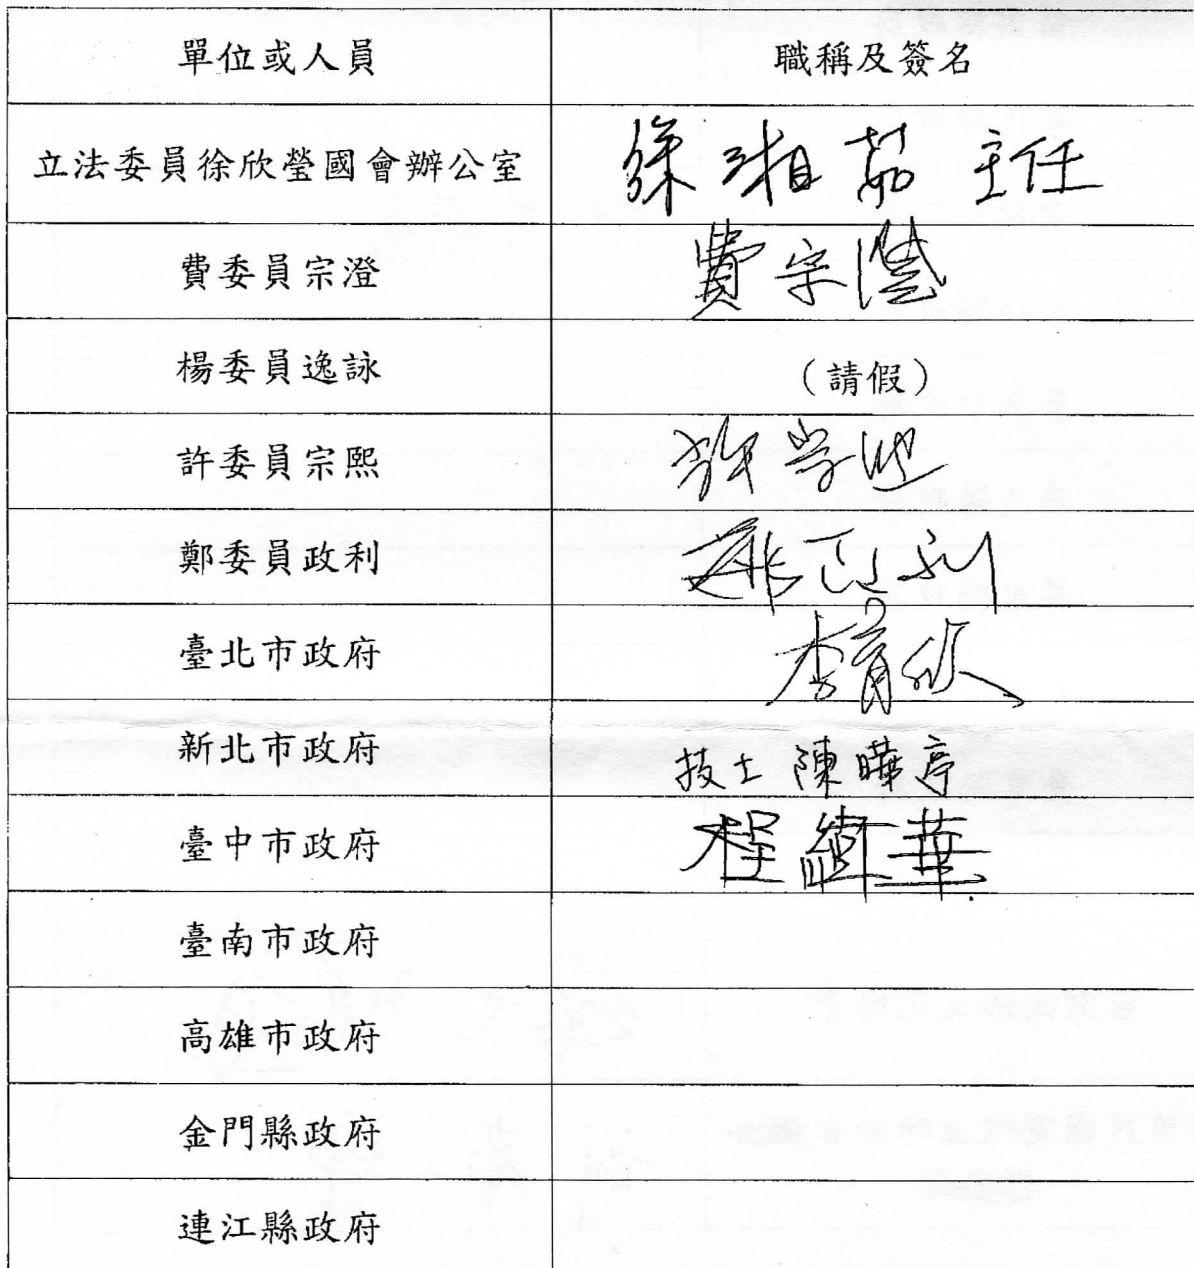 單位或人員 職稱及簽名
立法委員徐欣瑩國會辦公室 徐湘茹 主任
費委員宗澄 費宗澄
楊委員逸詠 （請假）
許委員宗熙 許宗熙
鄭委員政利 鄭政利
臺北市政府 李育欣
新北市政府 技士 陳曄亭
臺中市政府 程緯華
臺南市政府
高雄市政府
金門縣政府
連江縣政府